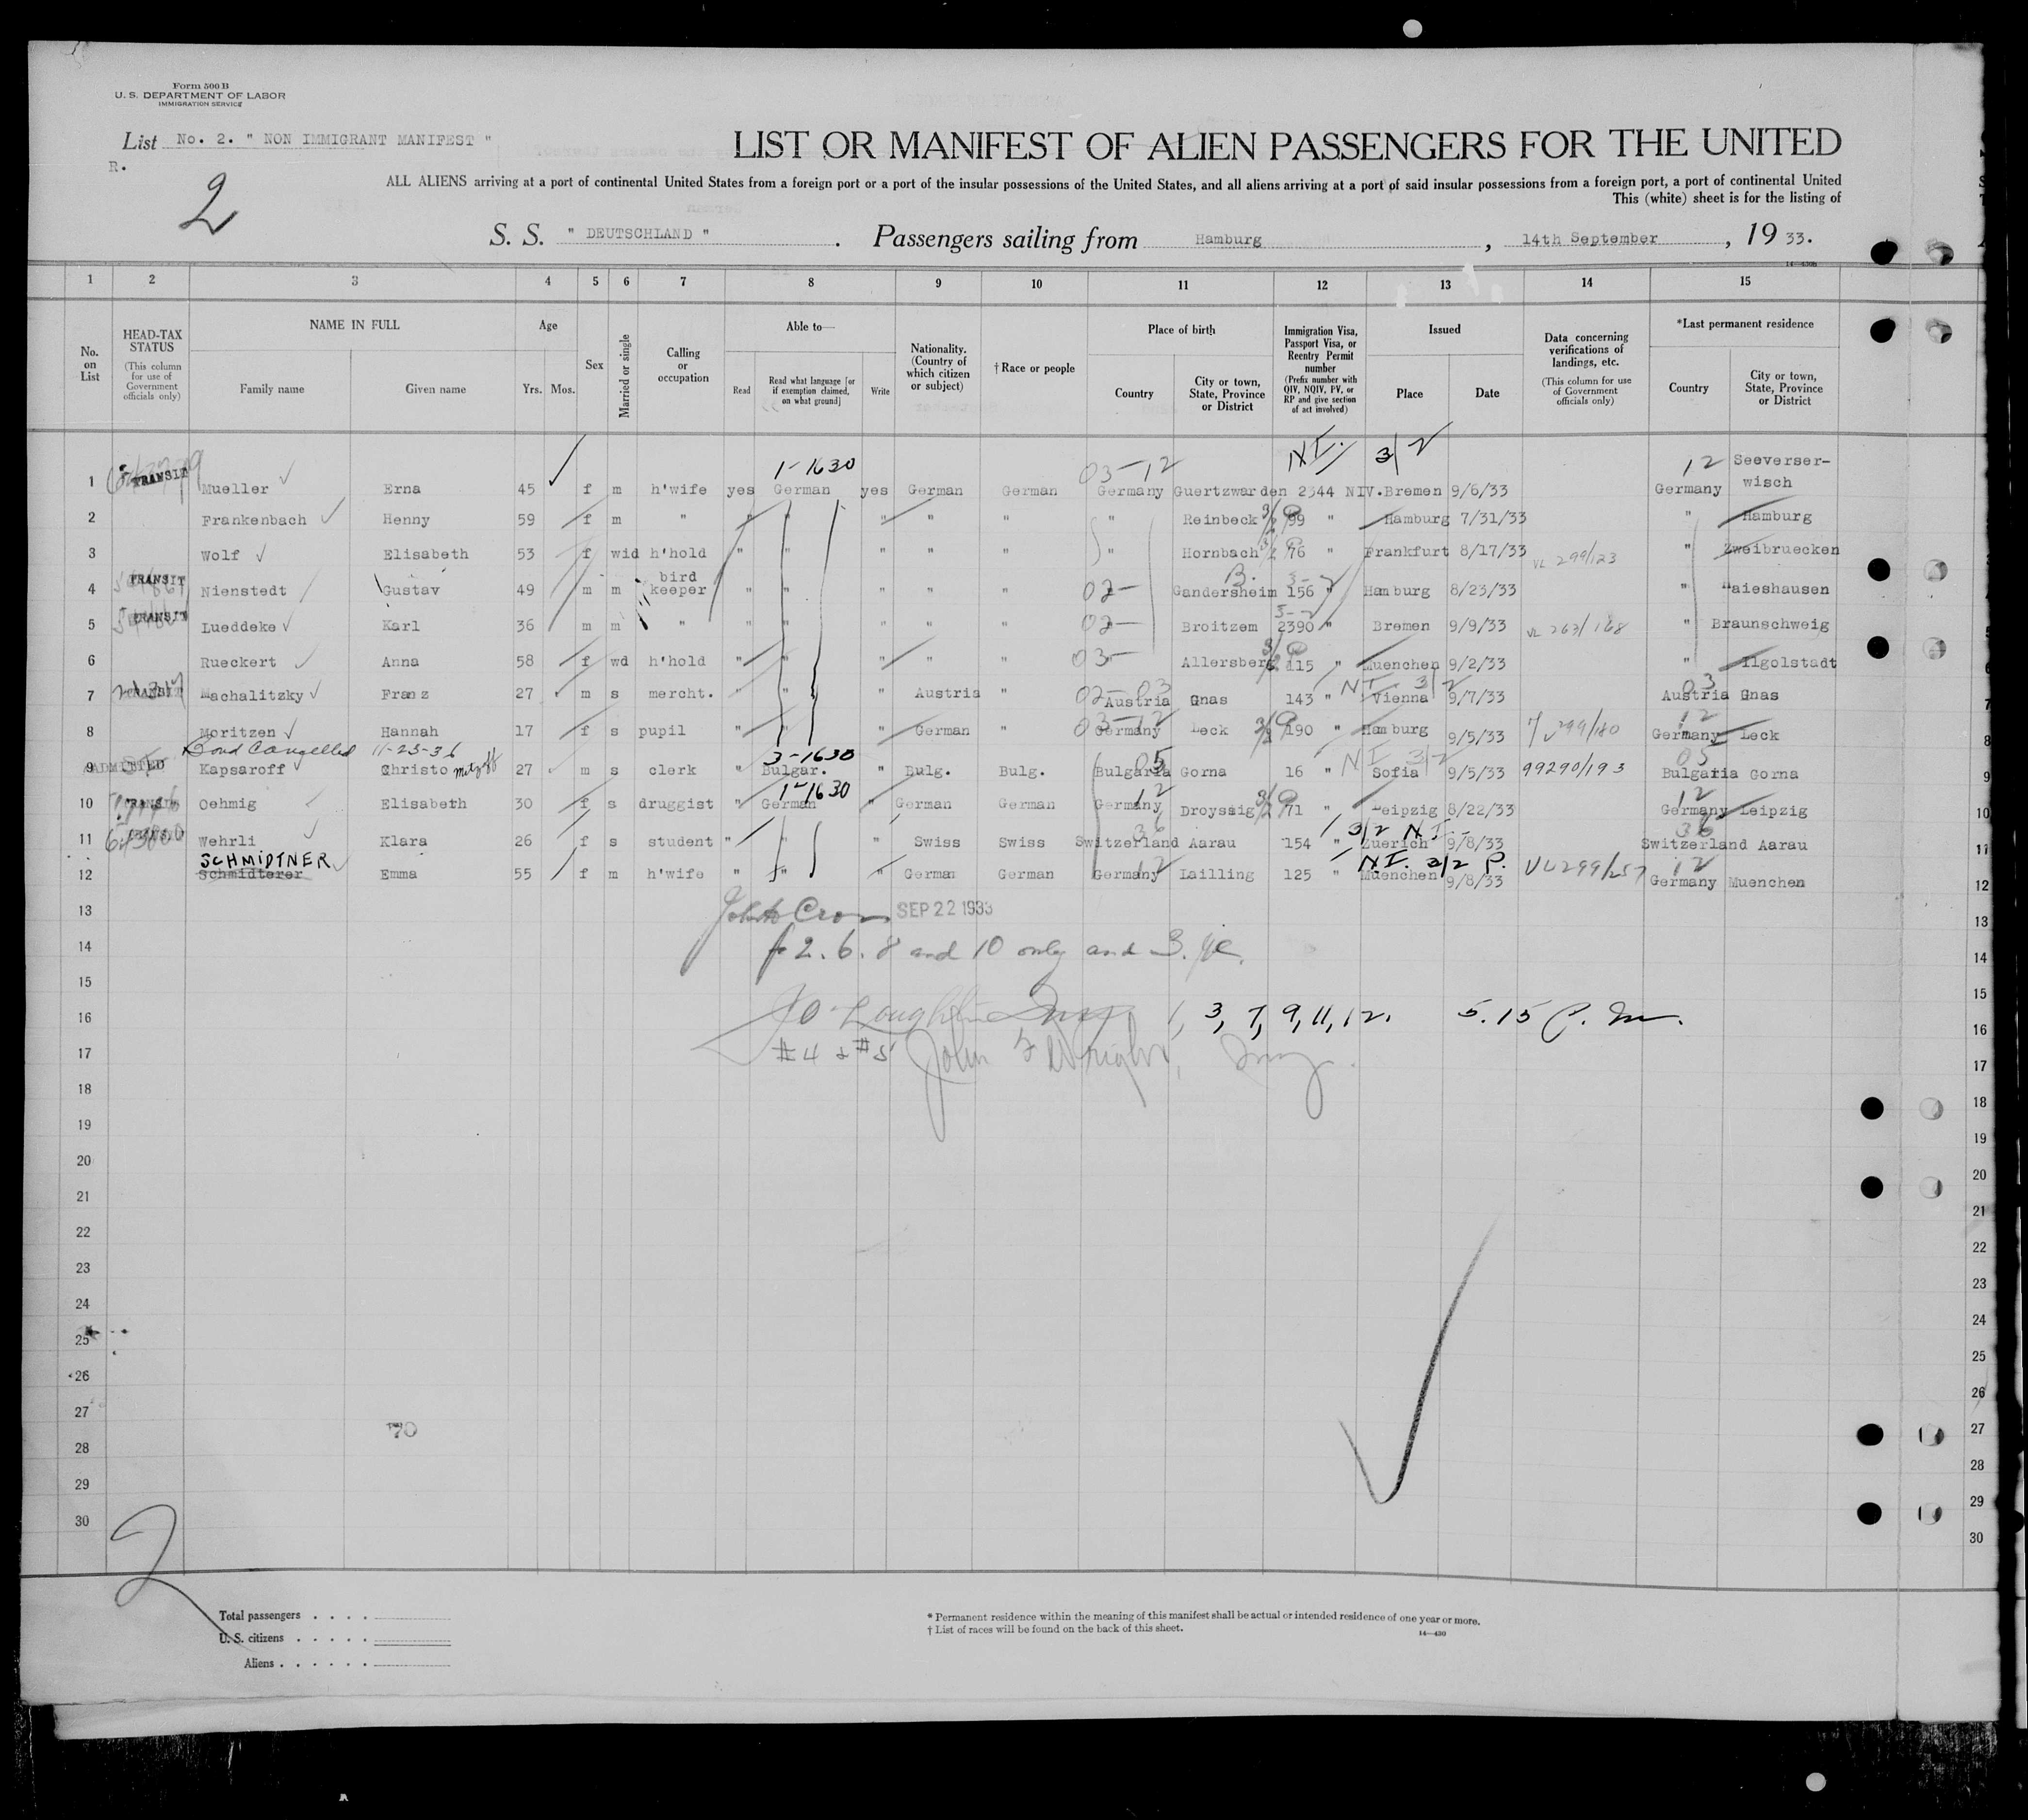 Form 500 B
U. S. DEPARTMENT OF LABOR
IMMIGRATION SERVICE
List No. 2. " NON IMMIGRANT MANIFEST "
R.
2
LIST OR MANIFEST OF ALIEN PASSENGERS FOR THE UNITED
ALL ALIENS arriving at a port of continental United States from a foreign port or a port of the insular possessions of the United States, and all aliens arriving at a port of said insular possessions from a foreign port, a port of continental United
This (white) sheet is for the listing of
S. S. " DEUTSCHLAND " . Passengers sailing from Hamburg , 14th September , 19 33.
1 2 3 4 5 6 7 8 9 10 11 12 13 14 15
No. on List
HEAD-TAX STATUS (This column for use of Government officials only)
NAME IN FULL
Family name Given name
Age
Yrs. Mos.
Sex
Married or single
Calling or occupation
Able to—
Read Read what language [or if exemption claimed, on what ground] Write
Nationality. (Country of which citizen or subject)
† Race or people
Place of birth
Country City or town, State, Province or District
Immigration Visa, Passport Visa, or Reentry Permit number (Prefix number with QIV, NQIV, PV, or RP and give section of act involved)
Issued
Place Date
Data concerning verifications of landings, etc. (This column for use of Government officials only)
*Last permanent residence
Country City or town, State, Province or District
1-1630 03-12 N.I. 3/2 12
1 TRANSIT Mueller Erna 45 f m h'wife yes German yes German German Germany Guertzwarden 2344 NIV. Bremen 9/6/33 Germany Seeverserwisch
2 Frankenbach Henny 59 f m " " " " " " " Reinbeck 99 " Hamburg 7/31/33 " Hamburg
3 Wolf Elisabeth 53 f wid h'hold " " " " " " Hornbach 76 " Frankfurt 8/17/33 VL 299/123 " Zweibruecken
4 TRANSIT Nienstedt Gustav 49 m m bird keeper " " " " " 02- Gandersheim 156 " Hamburg 8/23/33 " Haieshausen
5 TRANSIT Lueddeke Karl 36 m m " " " " " " 02- Broitzem 2390 " Bremen 9/9/33 VL 263/168 " Braunschweig
6 Rueckert Anna 58 f wd h'hold " " " " " 03- Allersberg 115 " Muenchen 9/2/33 " Ilgolstadt
7 TRANSIT Machalitzky Franz 27 m s mercht. " " " Austria " 02-03 Austria Gnas 143 " NI 3/2 Vienna 9/7/33 03 Austria Gnas
8 Moritzen Hannah 17 f s pupil " " " German " 03-12 Germany Leck 190 " Hamburg 9/5/33 299/180 12 Germany Leck
Bond Cancelled 11-23-36
9 ADMITTED Kapsaroff Christo 27 m s clerk " 3-1630 Bulgar. " Bulg. Bulg. 05 Bulgaria Gorna 16 " NI 3/2 Sofia 9/5/33 99290/193 05 Bulgaria Gorna
10 TRANSIT Oehmig Elisabeth 30 f s druggist " 1-1630 German " German German 12 Germany Droyssig 71 " Leipzig 8/22/33 12 Germany Leipzig
11 Wehrli Klara 26 f s student " " " Swiss Swiss 36 Switzerland Aarau 154 " 3/2 N.I. Zuerich 9/8/33 36 Switzerland Aarau
SCHMIDTNER
12 Schmidterer Emma 55 f m h'wife " " " German German 12 Germany Lailling 125 " N.I. 3/2 P. Muenchen 9/8/33 VL299/257 12 Germany Muenchen
13 SEP 22 1933
14 2. 6. 8 and 10 only and 3.
15
16 1, 3, 7, 9, 11, 12. 5.15 P. M.
17 #4 & #5 John F Wright,
18
19
20
21
22
23
24
25
26
27
70
28
29
30
2
Total passengers . . . .
U. S. citizens . . . . .
Aliens . . . . . .
* Permanent residence within the meaning of this manifest shall be actual or intended residence of one year or more.
† List of races will be found on the back of this sheet.
14—430